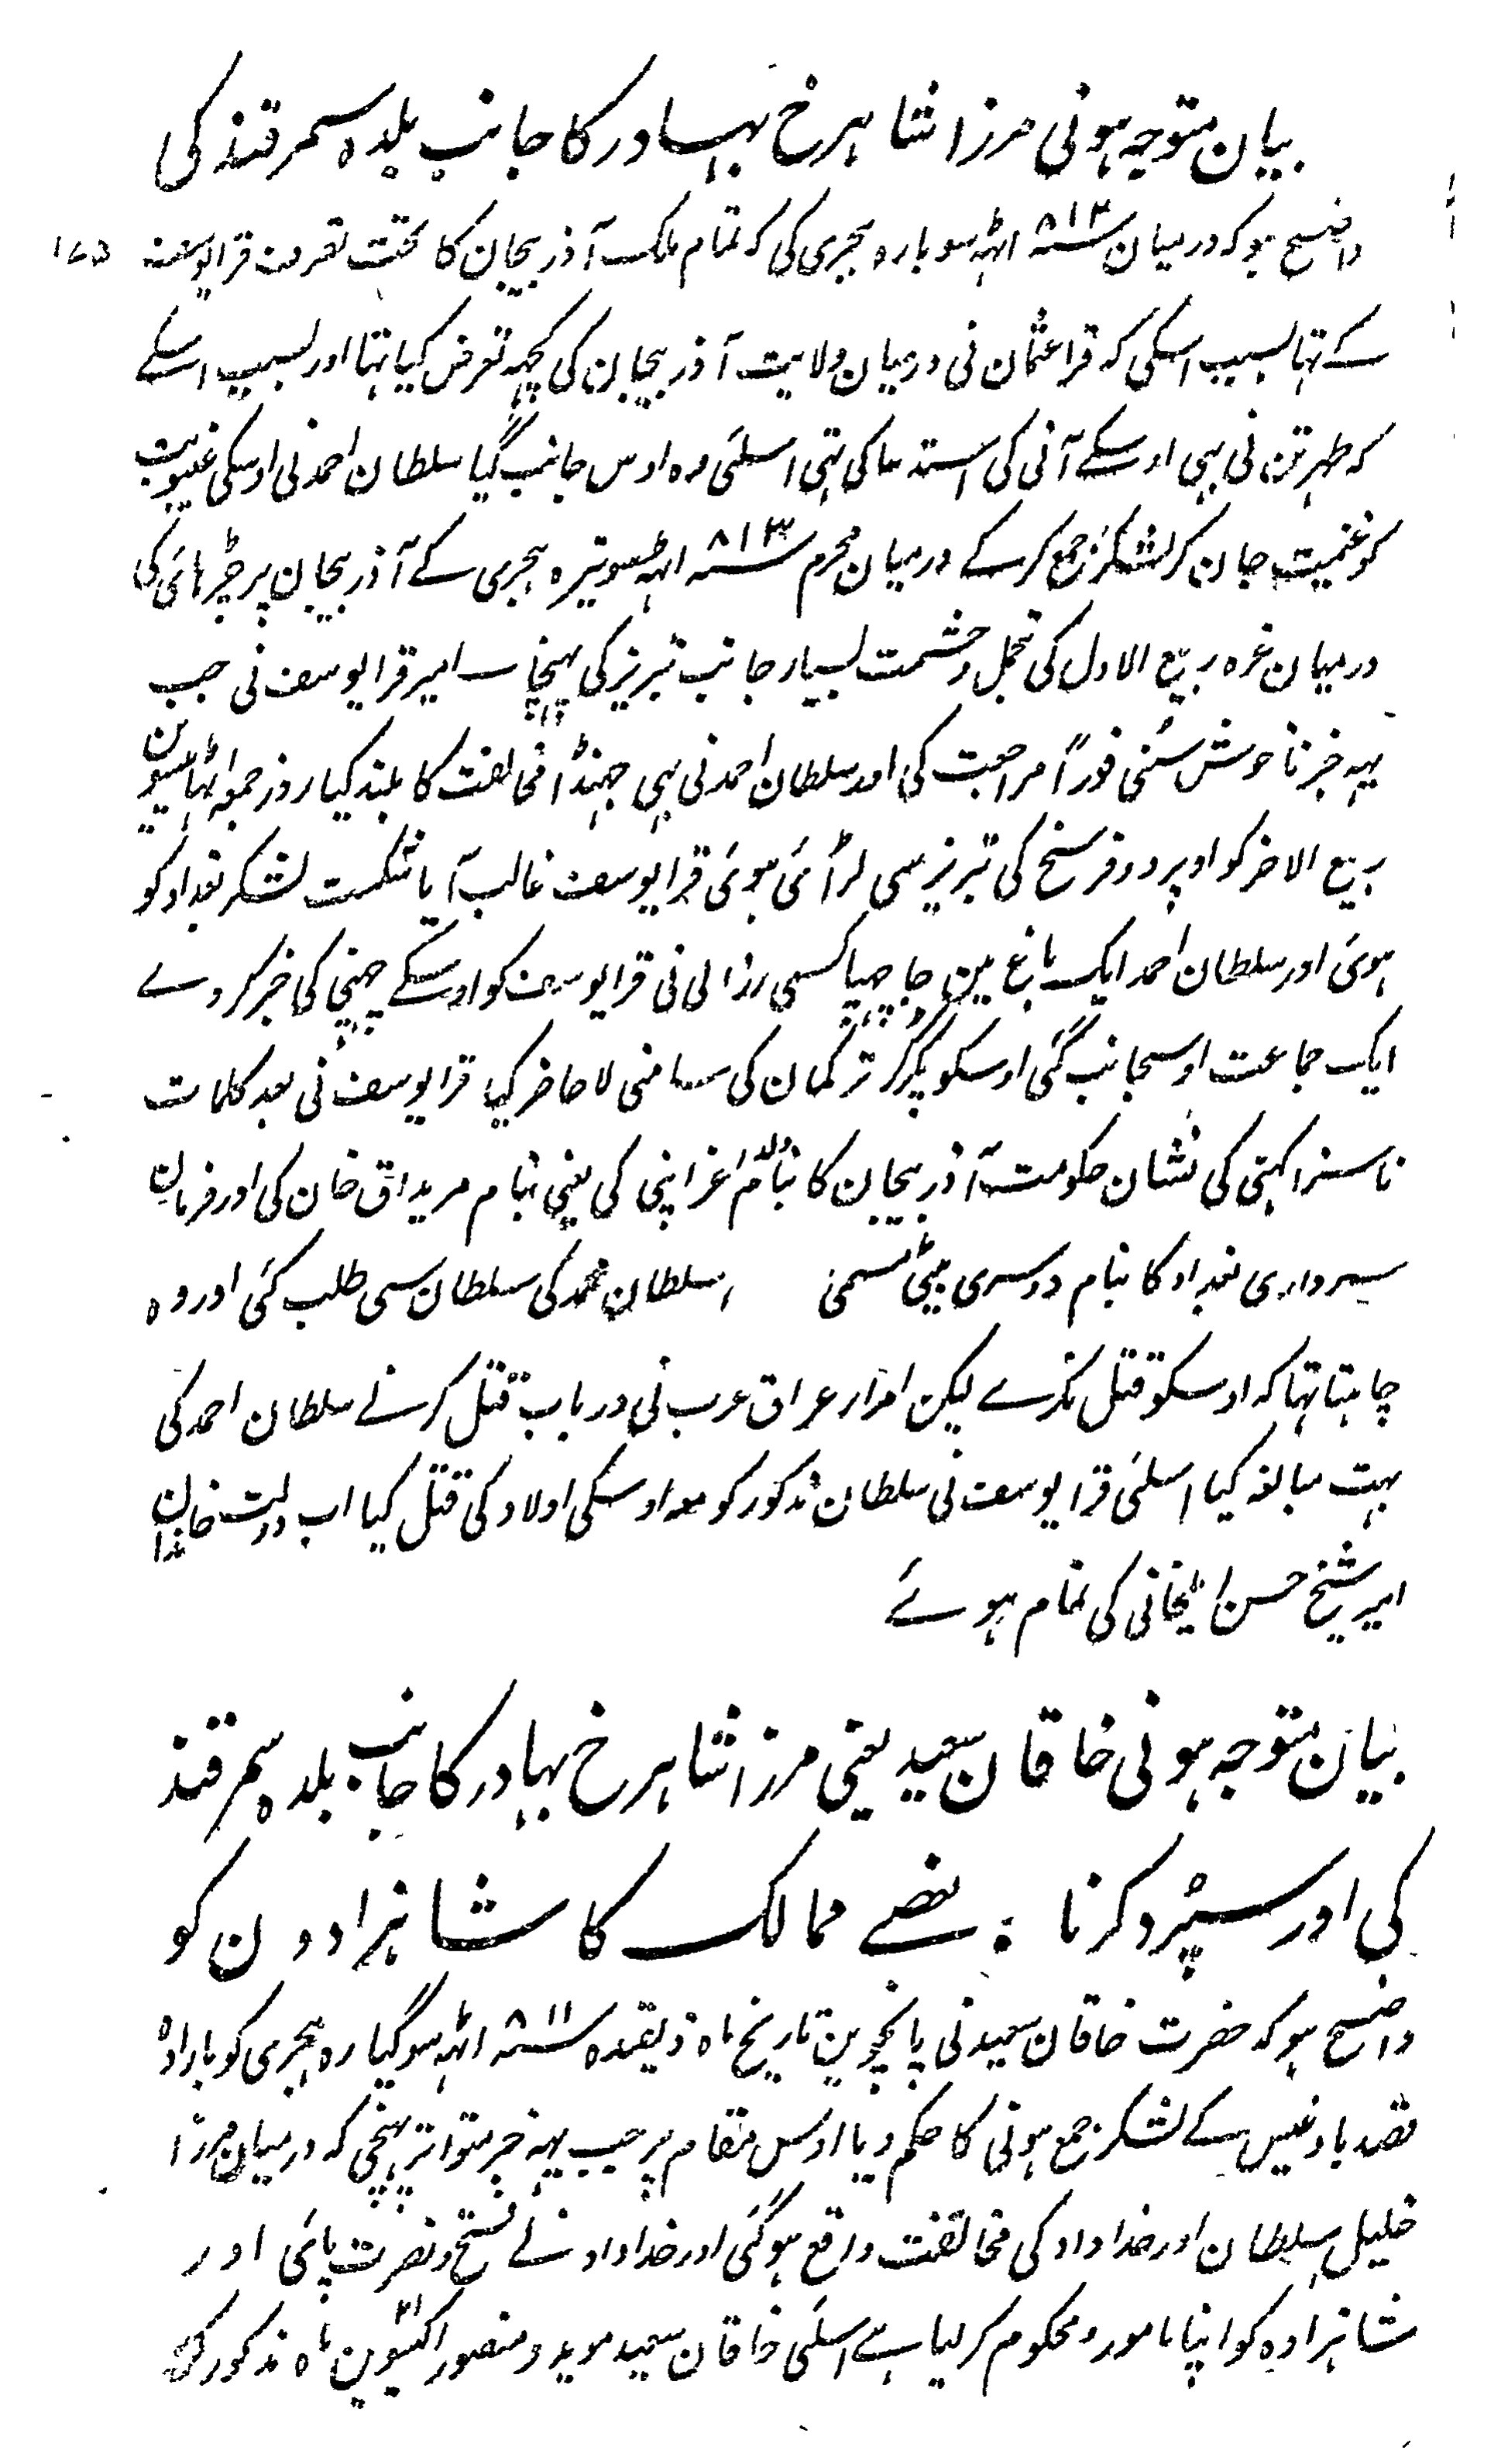 بیان متوجہ ہونی مرزا شاہرخ بہادر کا جانب بلدہ سمرقند کی
واضح ہو کہ درمیان ۸۱۲ سنہ اٹہہ سو بارہ ہجری کی کہ تمام ملک آذربیجان کا تحت تصرف قرایوسف
کے تہا بسبب اسکی کہ قرا عثمان نی درمیان ولایت آذربیجان کی کچہہ تعرض کیا تہا اور بسبب اسکے
کہ طہرتن نی بہی اوسکے آنی کی استدعا کی تہی اسلئی وہ اوس جانب گیا سلطان احمد نی اوسکی غیبوبت
کو غنیمت جان کر لشکر جمع کر کے درمیان محرم ۸۱۳ سنہ اٹہہ سو تیرہ ہجری کے آذربیجان پر چڑہائی کی
درمیان غرہ ربیع الاول کی تجمل و حشمت بسیار جانب تبریز کی پہنچا امیر قرایوسف نی جب
یہہ خبر ناخوش سُنی فوراً مراجعت کی اور سلطان احمد نی بہی جہنڈا مخالفت کا بلند کیا روز جمعہ اٹہائیسوین
ربیع الاخر کو اوپر دو فرسخ کی تبریز سی لڑائی ہوئی قرایوسف غالب آیا شکست لشکر بغداد کو
ہوئی اور سلطان احمد ایک باغ مین جا چہپا کسی رذالی نی قرایوسف کو اوسکے چہپنی کی خبر کر دے
ایک جماعت اوسجانب گئی اوسکو پکڑ کر ترکمان کی سامنی لا حاضر کیا قرایوسف نی بعد کلمات
ناسزا کہنی کی نشان حکومت آذربیجان کا بنام ولد اعز اپنی کی یعنی بنام مرید اق خان کی اور فرمان
سرداری بغداد کا بنام دوسری بیٹی مسمیٰ سلطان محمد کی سلطان سی طلب کئی اور وہ
چاہتا تہا کہ اوسکو قتل نکرے لیکن امرار عراق عرب نی در باب قتل کرنے سلطان احمد کی
بہت مبالغہ کیا اسلئی قرایوسف نی سلطان مذکور کو معہ اوسکی اولاد کی قتل کیا اب دولت خاندان
امیر شیخ حسن ایلخانی کی تمام ہوئے
بیان متوجہ ہونی خاقان سعید یعنی مرزا شاہرخ بہادر کا جانب بلدہ سمرقند
کی اور سپرد کرنا بعضے ممالک کا شاہزادون کو
واضح ہو کہ حضرت خاقان سعید نی پانچوین تاریخ ماہ ذیقعدہ ۸۱۱ سنہ اٹہہ سو گیارہ ہجری کو بارادہ
قصد بادغیس کے لشکر جمع ہونی کا حکم دیا اوس مقام پر جب یہہ خبر متواتر پہنچی کہ درمیان مرزا
خلیل سلطان اور خداداد کی مخالفت واقع ہو گئی اور خداداد نے فتح و نصرت پائی اور
شاہزادہ کو اپنا مامور و محکوم کر لیا ہے اسلئی خاقان سعید موید و منصور اکیسوین ۲۱ ماہ مذکور کو